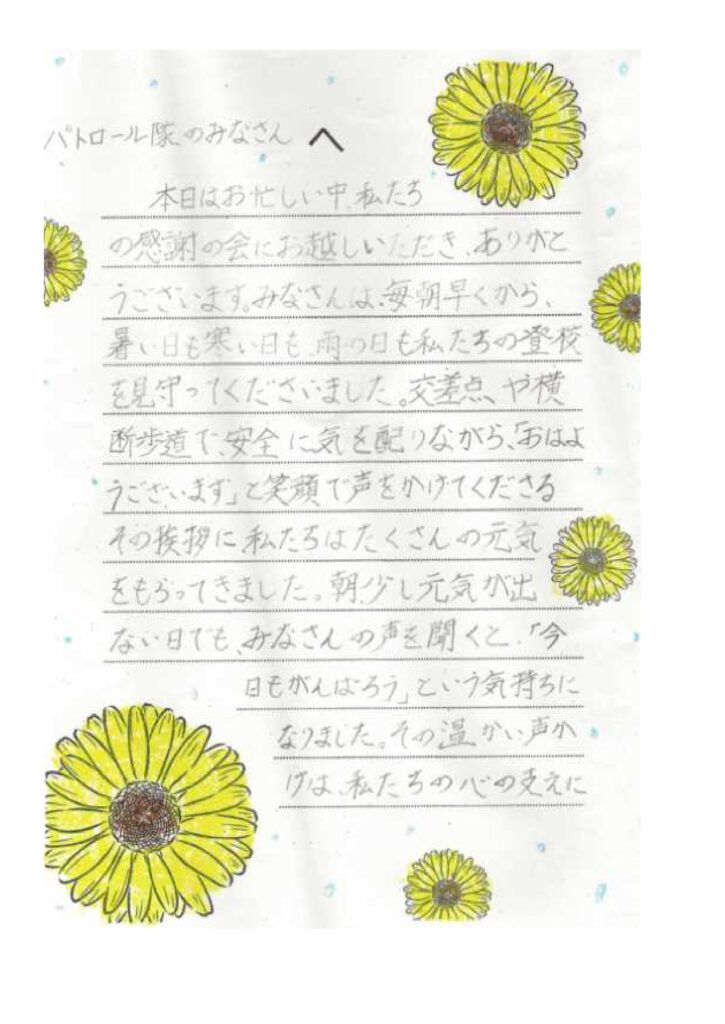 パトロール隊のみなさん へ
本日はお忙しい中、私たち
の感謝の会にお越しいただき、ありがと
うございます。みなさんは、毎朝早くから、
暑い日も寒い日も、雨の日も私たちの登校
を見守ってくださいました。交差点や横
断歩道で、安全に気を配りながら、「おはよ
うございます」と笑顔で声をかけてくださる
その挨拶に私たちはたくさんの元気
をもらってきました。朝、少し元気が出
ない日でも、みなさんの声を聞くと、「今
日もがんばろう」という気持ちに
なりました。その温かい声か
けは、私たちの心の支えに